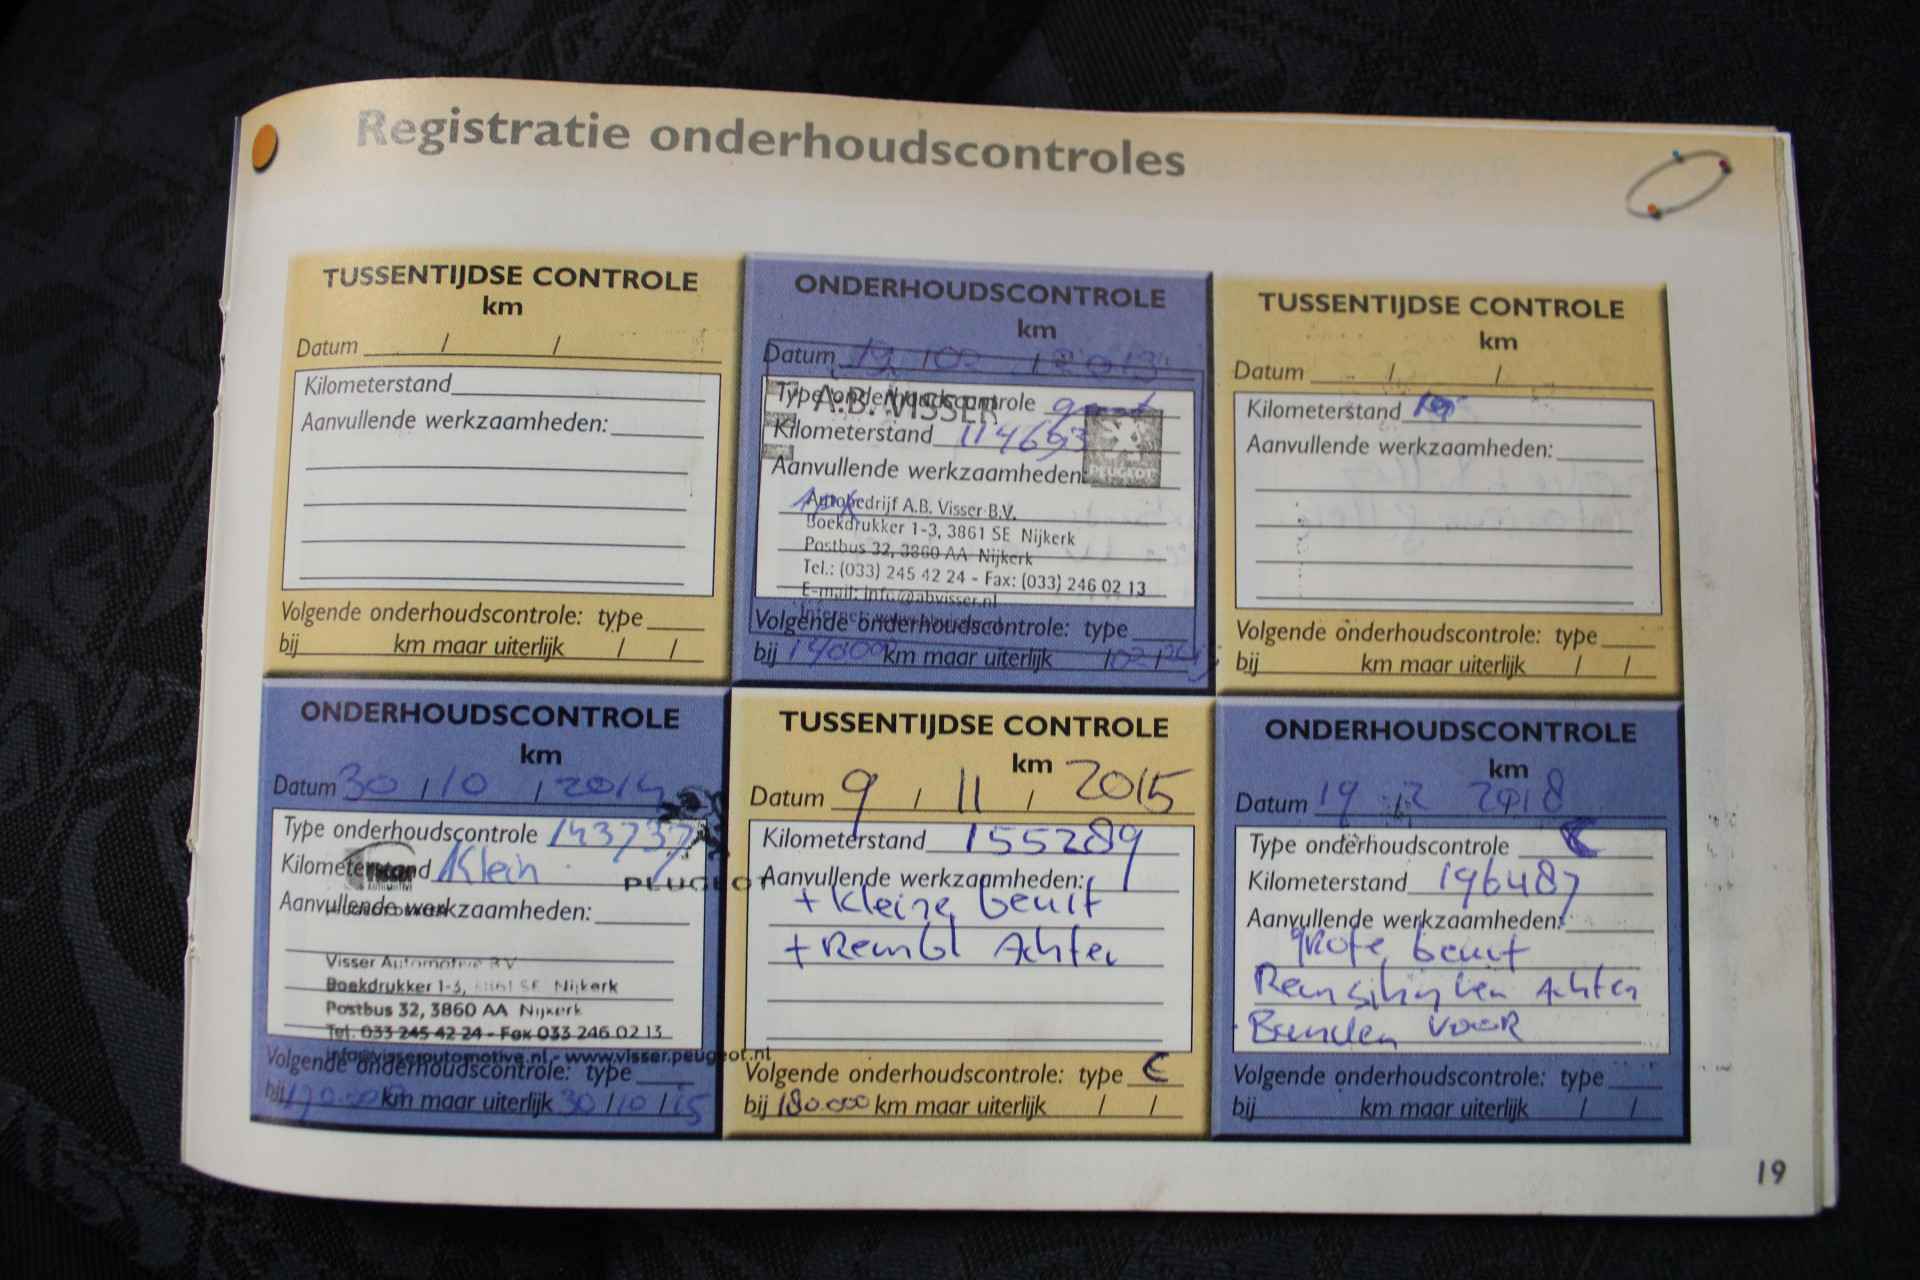 Registratie onderhoudscontroles
TUSSENTIJDSE CONTROLE
km
Datum / /
Kilometerstand
Aanvullende werkzaamheden:
Volgende onderhoudscontrole: type
bij km maar uiterlijk / /
ONDERHOUDSCONTROLE
km
Datum 19 / 02 / 2013
Type onderhoudscontrole groot
A.B. VISSER
Kilometerstand 114693
PEUGEOT
Aanvullende werkzaamheden:
APK
Autobedrijf A.B. Visser B.V.
Boekdrukker 1-3, 3861 SE Nijkerk
Postbus 32, 3860 AA Nijkerk
Tel.: (033) 245 42 24 - Fax: (033) 246 02 13
E-mail: info@abvisser.nl
Volgende onderhoudscontrole: type
bij km maar uiterlijk / 02 /
TUSSENTIJDSE CONTROLE
km
Datum / /
Kilometerstand
Aanvullende werkzaamheden:
Volgende onderhoudscontrole: type
bij km maar uiterlijk / /
ONDERHOUDSCONTROLE
km
Datum 30 / 10 / 2014
Type onderhoudscontrole 143737
Kilometerstand Klein
PEUGEOT
Aanvullende werkzaamheden:
Visser Automotive B.V.
Boekdrukker 1-3, 3861 SE Nijkerk
Postbus 32, 3860 AA Nijkerk
Tel. 033 245 42 24 - Fax 033 246 02 13
info@visserautomotive.nl - www.visser.peugeot.nl
Volgende onderhoudscontrole: type
bij 170.000 km maar uiterlijk 30 / 10 / 15
TUSSENTIJDSE CONTROLE
km
Datum 9 / 11 / 2015
Kilometerstand 155289
Aanvullende werkzaamheden:
+ Kleine beurt
+ Rembl Achter
Volgende onderhoudscontrole: type C
bij 180.000 km maar uiterlijk / /
ONDERHOUDSCONTROLE
km
Datum 19 / 2 2018
Type onderhoudscontrole C
Kilometerstand 196487
Aanvullende werkzaamheden:
grote beurt
Remsch Achter
Banden VOOR
Volgende onderhoudscontrole: type
bij km maar uiterlijk / /
19